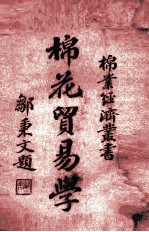 棉業經濟叢書
棉花貿易學
鄒秉文題